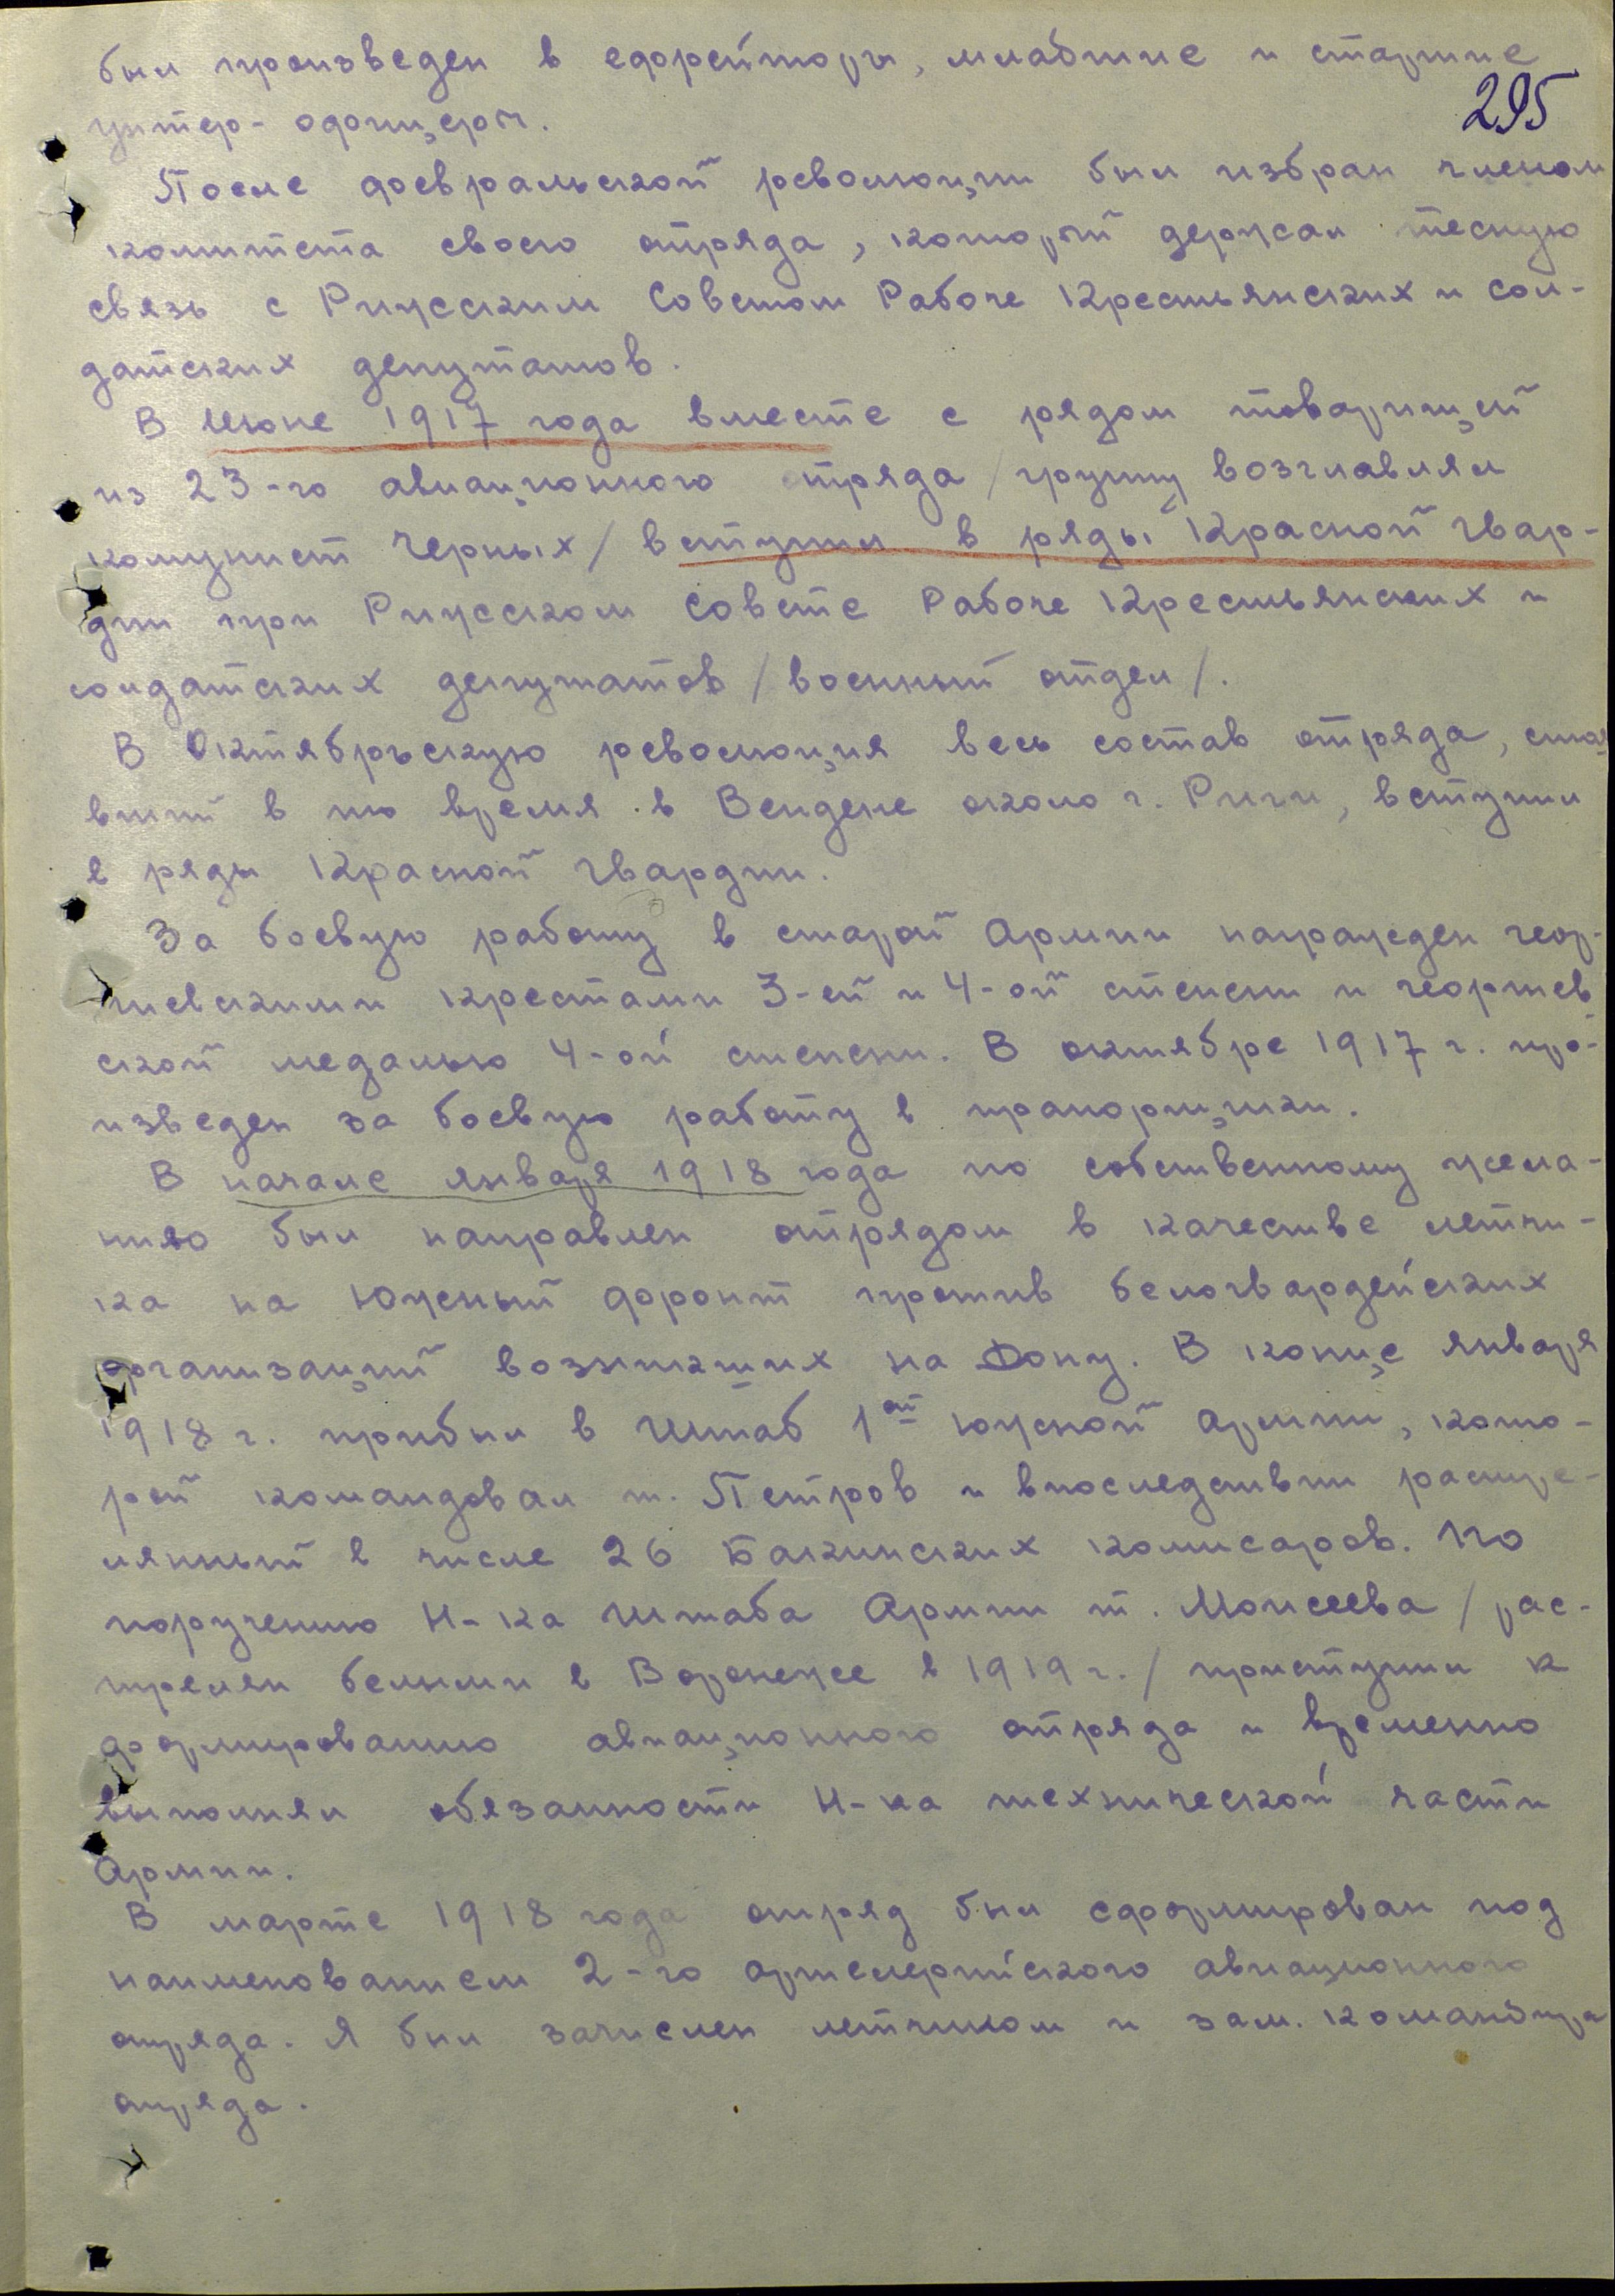 был произведен в ефрейторы, младшие и старшие
295
унтер-офицеры.
После февральской революции был избран членом
комитета своего отряда, который держал тесную
связь с Рижским Советом Рабоче Крестьянских и сол-
датских депутатов.
В Июне 1917 года вместе с рядом товарищей
из 23-го авиационного отряда /группу возглавлял
комунист Черных/ вступил в ряды Красной Гвар-
дии при Рижском Совете Рабоче Крестьянских и
солдатских депутатов /военный отдел/.
В Октябрьскую революция весь состав отряда, стоя
вший в то время в Вендене около г. Риги, вступил
в ряды Красной Гвардии.
За боевую работу в старой Армии награжден геор-
гиевскими крестами 3-ей и 4-ой степени и георгиев
ской медалью 4-ой степени. В октябре 1917 г. про-
изведен за боевую работу в прапорщики.
В начале января 1918 года по собственному жела-
нию был направлен отрядом в качестве летчи-
ка на Южный фронт против белогвардейских
организаций возникших на Дону. В конце января
1918 г. прибыл в Штаб 1ой Южной Армии, кото-
рой командовал т. Петров и впоследствии расстре-
лянный в числе 26 Бакинских комисаров. По
поручению Н-ка Штаба Армии т. Моисеева /рас-
трелян белыми в Воронеже в 1919 г./ приступил к
формированию авиационного отряда и временно
выполнял обязанности Н-ка технической части
Армии.
В марте 1918 года отряд был сформирован под
наименованием 2-го артилерийского авиационного
отряда. Я был зачислен летчиком и зам. командира
отряда.